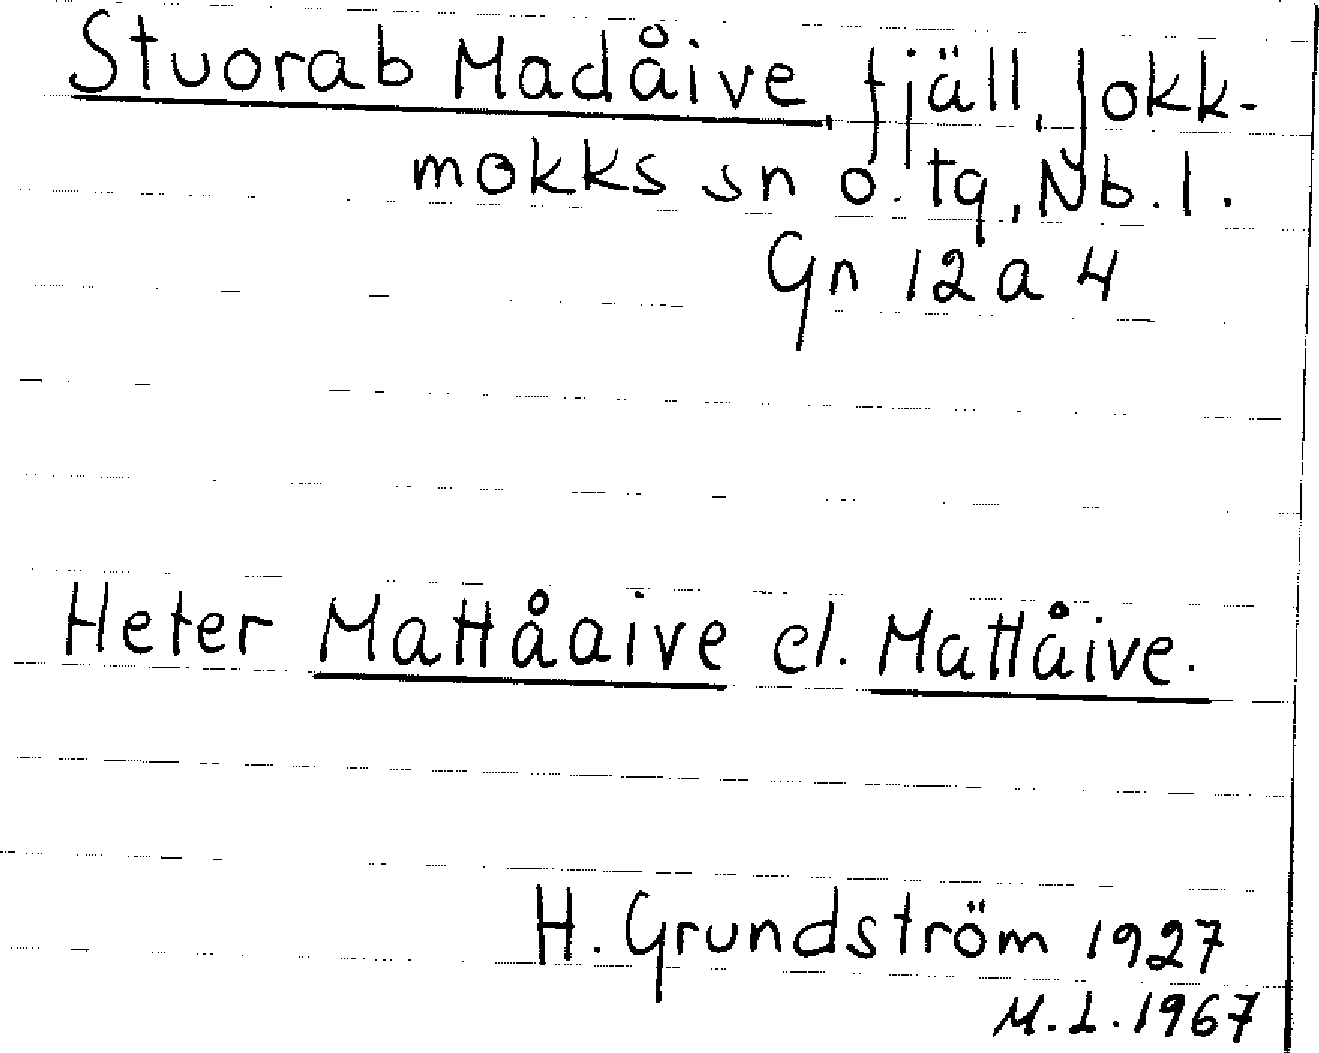 Stuorab Madåive, fjäll, Jokk-
mokks sn o. tg, Nb. l.
Gn 12 a 4
Heter Mattåaive el. Mattåive.
H. Grundström 1927
M.L. 1967